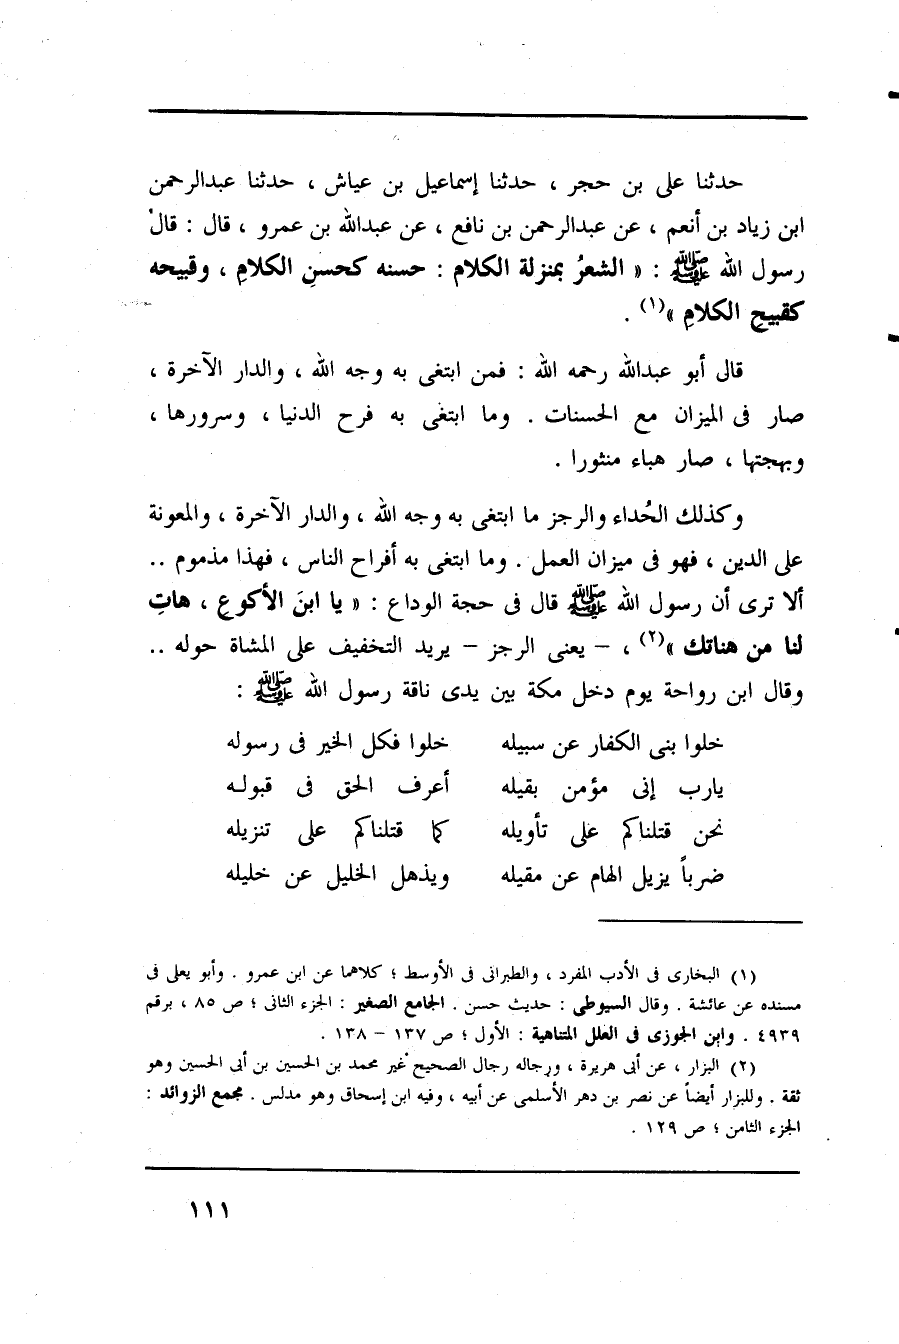 حدثنا على بن حجر ، حدثنا إسماعيل بن عياش ، حدثنا عبدالرحمن
ابن زياد بن أنعم ، عن عبدالرحمن بن نافع ، عن عبدالله بن عمرو ، قال : قال
رسول الله ﷺ : « الشعرُ بمنزلة الكلام : حسنه كحسنِ الكلامِ ، وقبيحه
كقبيحِ الكلامِ »(١) .
قال أبو عبدالله رحمه الله : فمن ابتغى به وجه الله ، والدار الآخرة ،
صار فى الميزان مع الحسنات . وما ابتغى به فرح الدنيا ، وسرورها ،
وبهجتها ، صار هباء منثورا .
وكذلك الحُداء والرجز ما ابتغى به وجه الله ، والدار الآخرة ، والمعونة
على الدين ، فهو فى ميزان العمل . وما ابتغى به أفراح الناس ، فهذا مذموم ..
ألا ترى أن رسول الله ﷺ قال فى حجة الوداع : « يا ابنَ الأكوعِ ، هاتِ
لنا من هناتك »(٢) ، – يعنى الرجز – يريد التخفيف على المشاة حوله ..
وقال ابن رواحة يوم دخل مكة بين يدى ناقة رسول الله ﷺ :
خلوا بنى الكفار عن سبيله خلوا فكل الخير فى رسوله
يارب إنى مؤمن بقيله أعرف الحق فى قبوله
نحن قتلناكم على تأويله كما قتلناكم على تنزيله
ضرباً يزيل الهام عن مقيله ويذهل الخليل عن خليله
(١) البخارى فى الأدب المفرد ، والطبرانى فى الأوسط ؛ كلاهما عن ابن عمرو . وأبو يعلى فى
مسنده عن عائشة . وقال السيوطى : حديث حسن . الجامع الصغير : الجزء الثانى ؛ ص ٨٥ ، برقم
٤٩٣٩ . وابن الجوزى فى العلل المتناهية : الأول ؛ ص ١٣٧ – ١٣٨ .
(٢) البزار ، عن أبى هريرة ، ورجاله رجال الصحيح غير محمد بن الحسين بن أبى الحسين وهو
ثقة . وللبزار أيضاً عن نصر بن دهر الأسلمى عن أبيه ، وفيه ابن إسحاق وهو مدلس . مجمع الزوائد :
الجزء الثامن ؛ ص ١٢٩ .
١١١